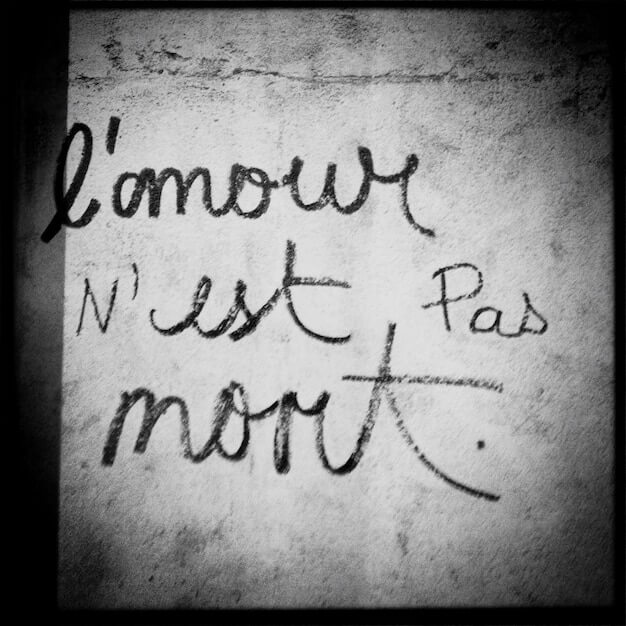 l'amour
N'est Pas
mort.